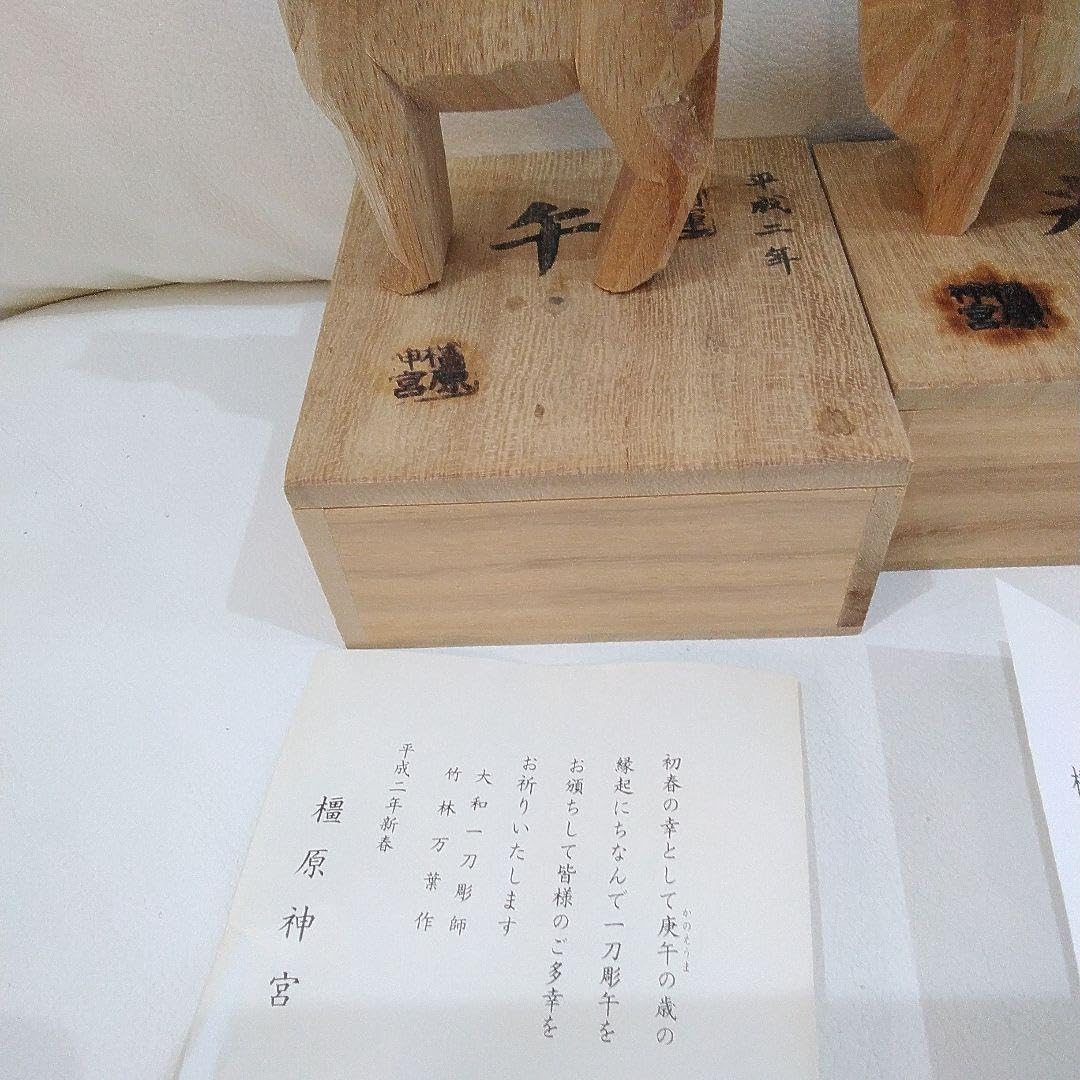 平成二年
午
橿原
神宮
神宮
初春の幸として庚午の歳の
かのえうま
縁起にちなんで一刀彫午を
お頒ちして皆様のご多幸を
お祈りいたします
大和一刀彫師
竹林万葉作
平成二年新春
橿原神宮